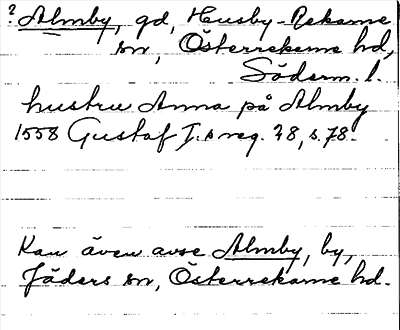 ? Almby, gd, Husby-Rekarne
sn, Österrekarne hd,
Söderm. l.
hustru Anna på Almby
1558 Gustaf I:s reg. 28, s. 78.
Kan även avse Almby, by,
Jäders sn, Österrekarne hd.